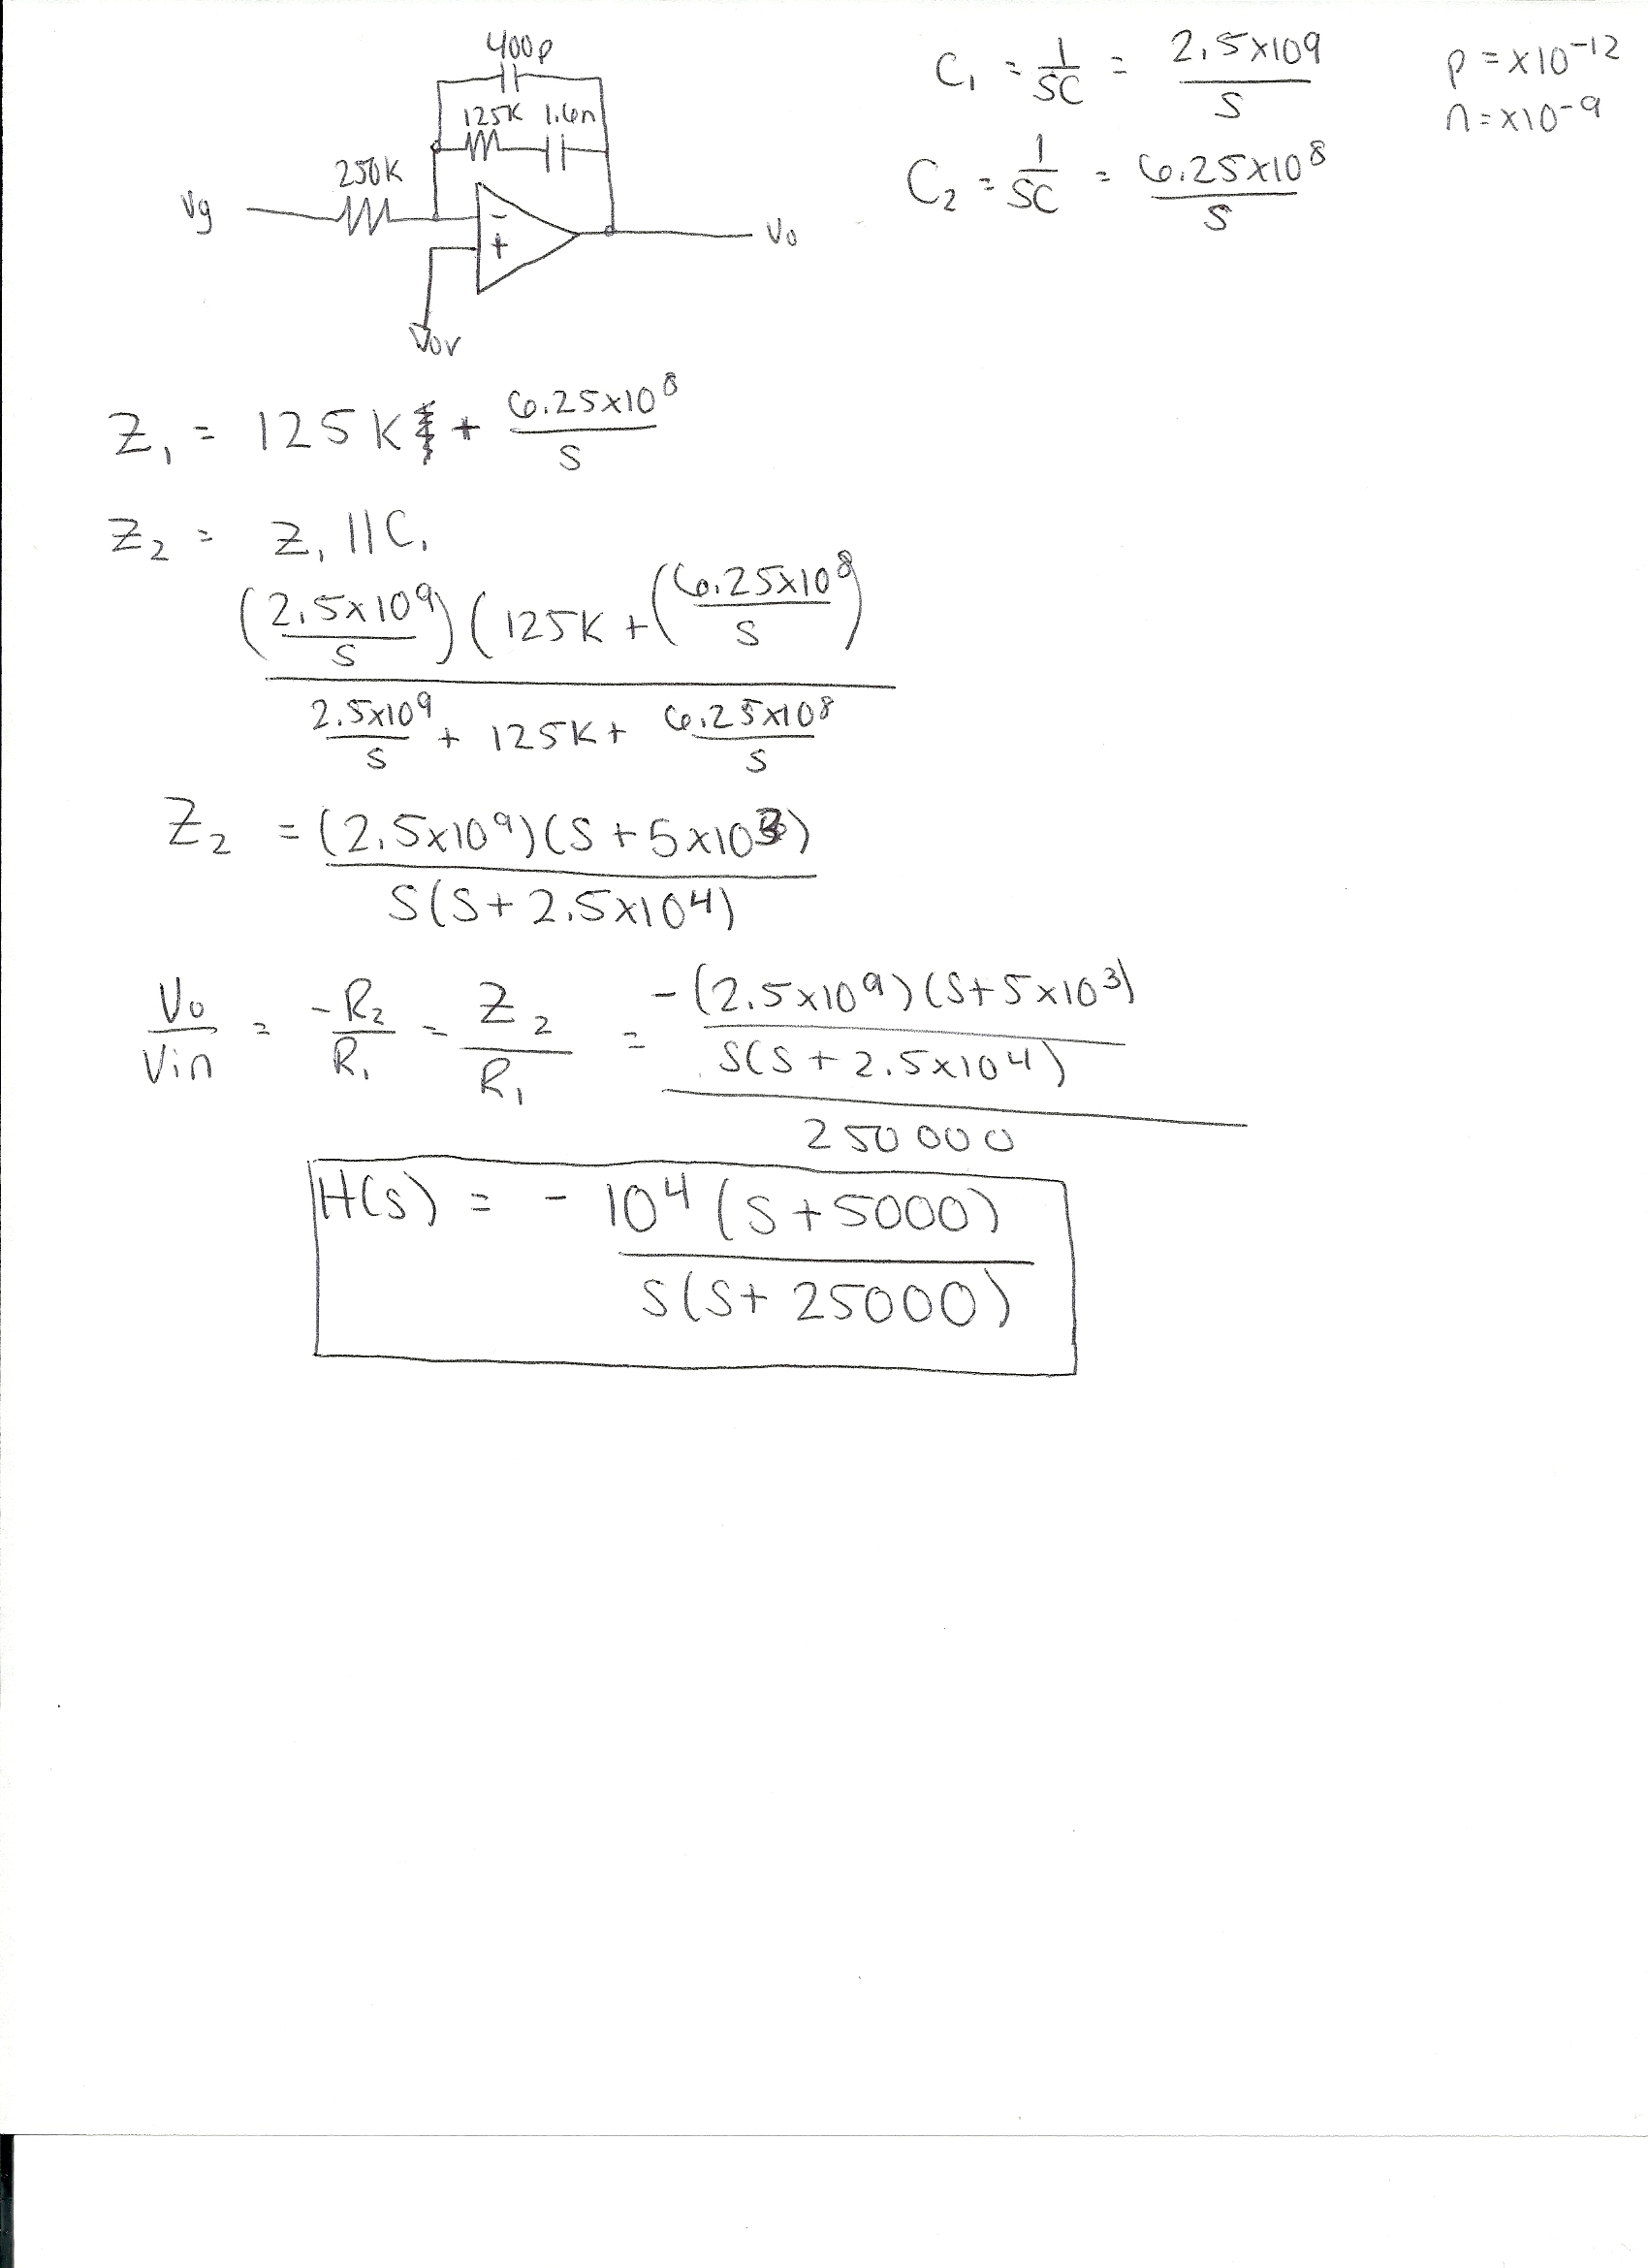 400p
125K 1.6n
250K
Vg
-
+
Vo
0V
C₁ = 1/SC = 2.5x10⁹/S
p = x10⁻¹²
n = x10⁻⁹
C₂ = 1/SC = 6.25x10⁸/S
Z₁ = 125K + 6.25x10⁸/S
Z₂ = Z₁ || C₁
(2.5x10⁹/S)(125K + (6.25x10⁸/S)
2.5x10⁹/S + 125K + 6.25x10⁸/S
Z₂ = (2.5x10⁹)(S + 5x10³)
S(S + 2.5x10⁴)
Vo/Vin = -R₂/R₁ = Z₂/R₁ = -(2.5x10⁹)(S+5x10³)
S(S + 2.5x10⁴)
250000
H(S) = - 10⁴(S+5000)
S(S+25000)